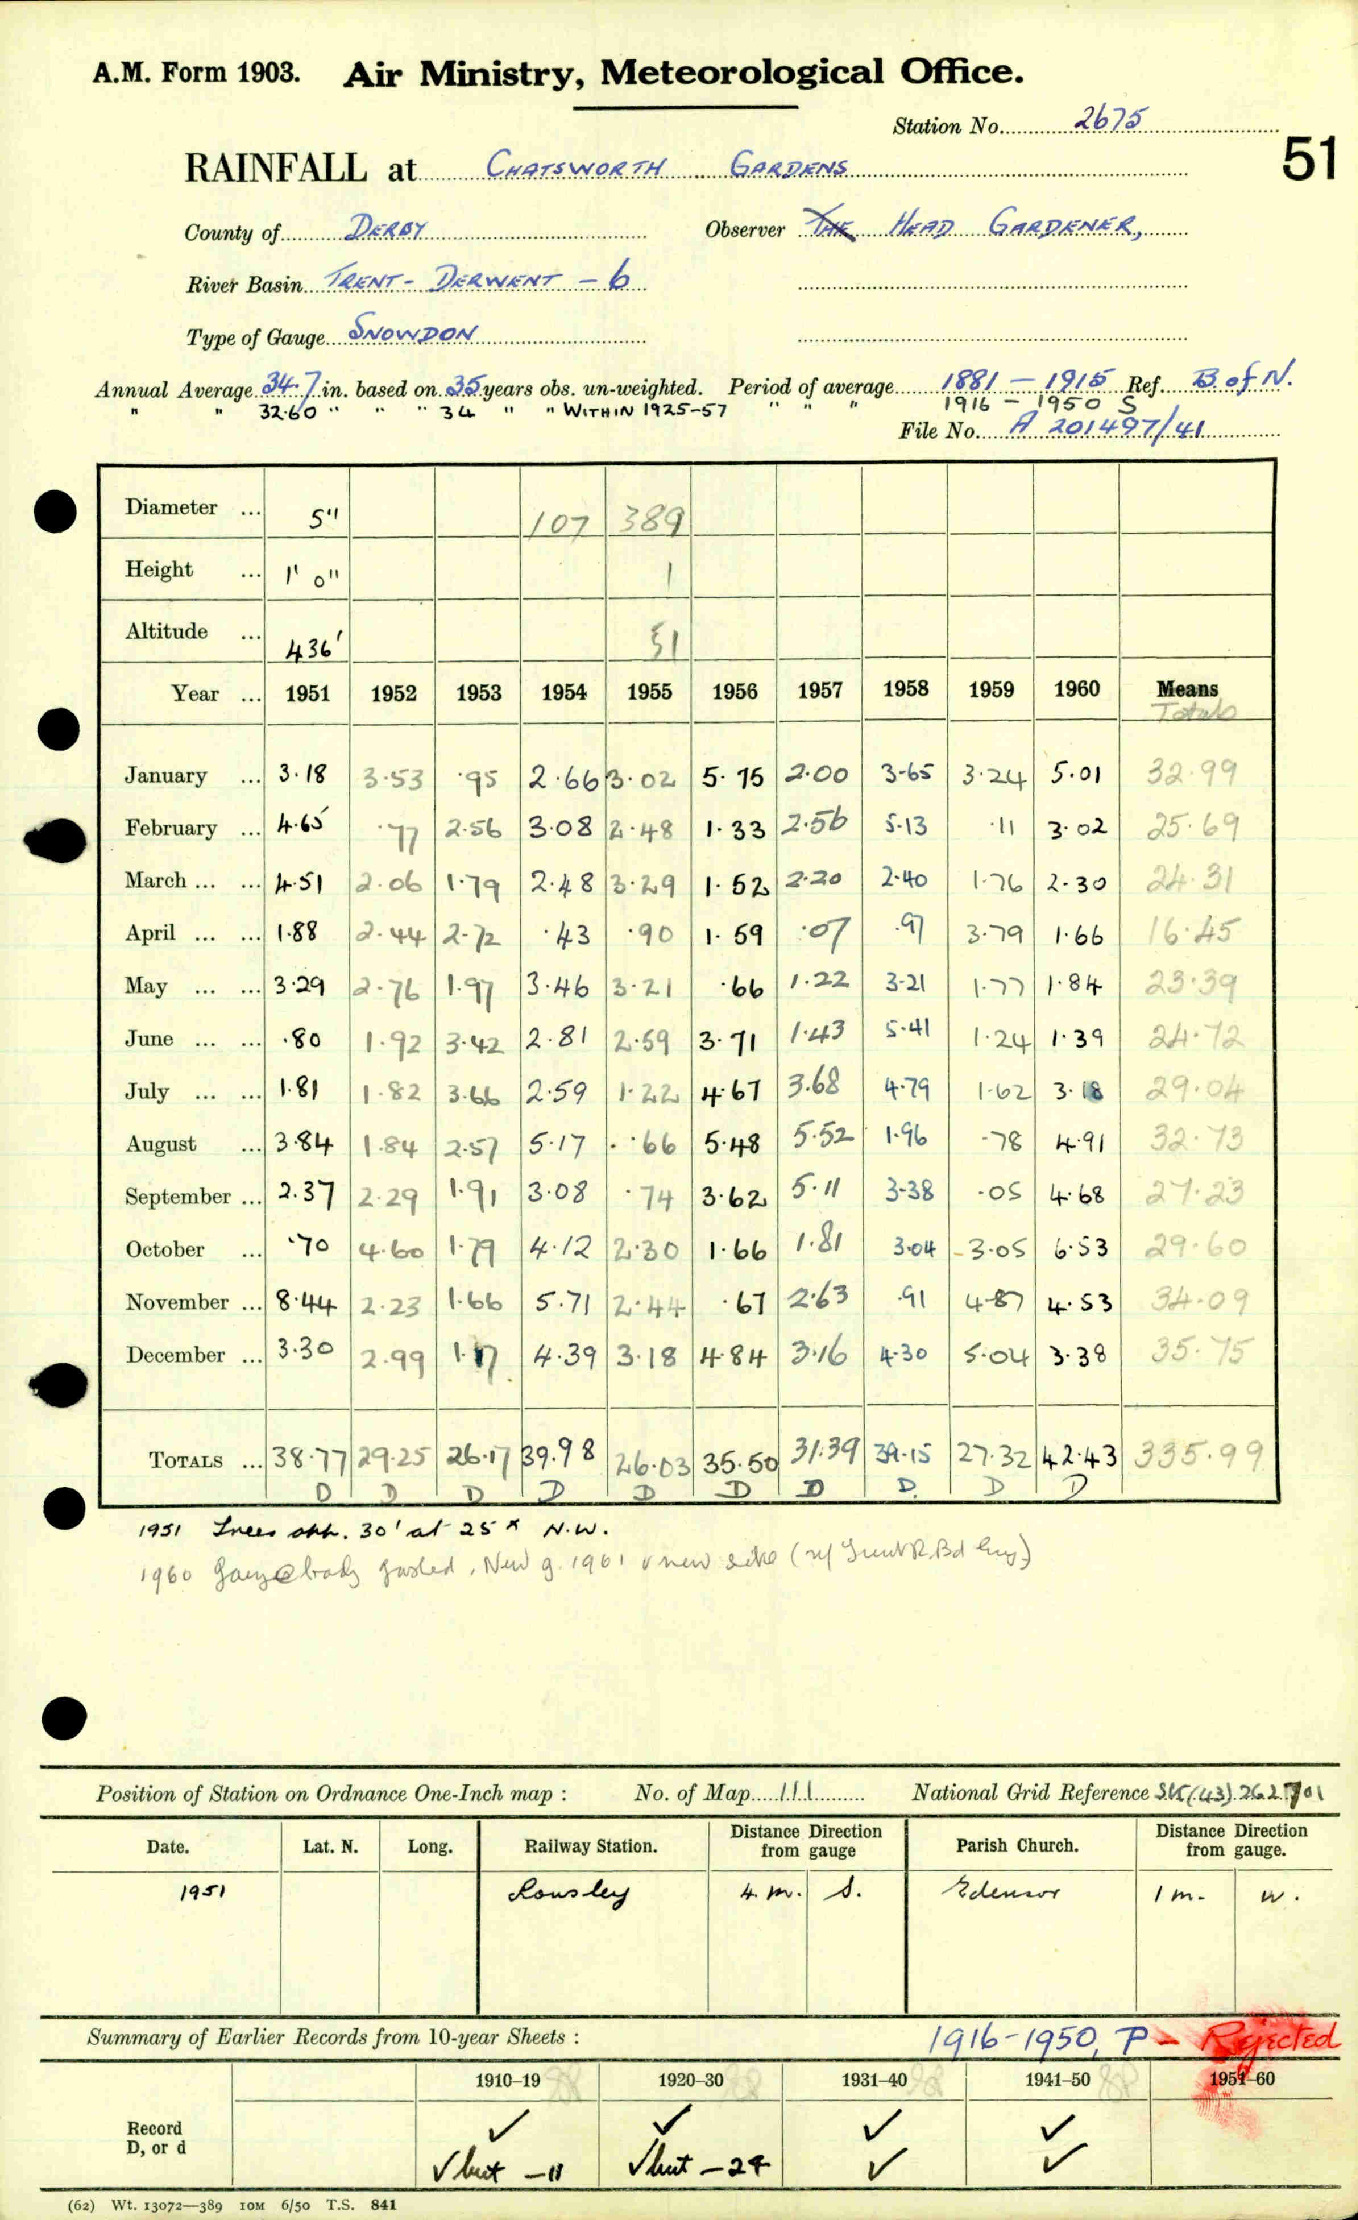 A.M. Form 1903. Air Ministry, Meteorological Office.
Station No. 2675
51
RAINFALL at CHATSWORTH GARDENS
County of DERBY Observer THE HEAD GARDENER,
River Basin TRENT - DERWENT - 6
Type of Gauge SNOWDON
Annual Average 34.7 in. based on 35 years obs. un-weighted. Period of average 1881 - 1915 Ref. B of N.
" " 32.60 " " " 34 " " WITHIN 1925-57 " " " 1916 - 1950 S
File No. A 201497/41
Diameter ... 5" 107 389
Height ... 1' 0" 1
Altitude ... 436' 51
Year ... 1951 1952 1953 1954 1955 1956 1957 1958 1959 1960 Means
Totals
January ... 3.18 3.53 .95 2.66 3.02 5.75 2.00 3.65 3.24 5.01 32.99
February ... 4.65 .77 2.56 3.08 2.48 1.33 2.56 5.13 .11 3.02 25.69
March ... ... 4.51 2.06 1.79 2.48 3.29 1.52 2.20 2.40 1.76 2.30 24.31
April ... ... 1.88 2.44 2.72 .43 .90 1.59 .07 .97 3.79 1.66 16.45
May ... ... 3.29 2.76 1.97 3.46 3.21 .66 1.22 3.21 1.77 1.84 23.39
June ... ... .80 1.92 3.42 2.81 2.59 3.71 1.43 5.41 1.24 1.39 24.72
July ... ... 1.81 1.82 3.66 2.59 1.22 4.67 3.68 4.79 1.62 3.18 29.04
August ... 3.84 1.84 2.57 5.17 .66 5.48 5.52 1.96 .78 4.91 32.73
September ... 2.37 2.29 1.91 3.08 .74 3.62 5.11 3.38 .05 4.68 27.23
October ... .70 4.60 1.79 4.12 2.30 1.66 1.81 3.04 3.05 6.53 29.60
November ... 8.44 2.23 1.66 5.71 2.44 .67 2.63 .91 4.87 4.53 34.09
December ... 3.30 2.99 1.17 4.39 3.18 4.84 3.16 4.30 5.04 3.38 35.75
TOTALS ... 38.77 29.25 26.17 39.98 26.03 35.50 31.39 39.15 27.32 42.43 335.99
D D D D D D D D. D D
1951 Trees 30' at 25 x N.W.
1960 Gauge badly New g. 1961 new site
Position of Station on Ordnance One-Inch map : No. of Map 111 National Grid Reference SK(43) 262701
Date. Lat. N. Long. Railway Station. Distance from gauge Direction Parish Church. Distance Direction from gauge.
1951 Rowsley 4 m. S. Edensor 1 m. W.
Summary of Earlier Records from 10-year Sheets : 1916-1950, P - Rejected
1910–19 1920–30 1931–40 1941–50 1951–60
Record ✓ ✓ ✓ ✓
D, or d ✓ but -11 ✓ but -24 ✓ ✓
(62) Wt. 13072—389 10M 6/50 T.S. 841